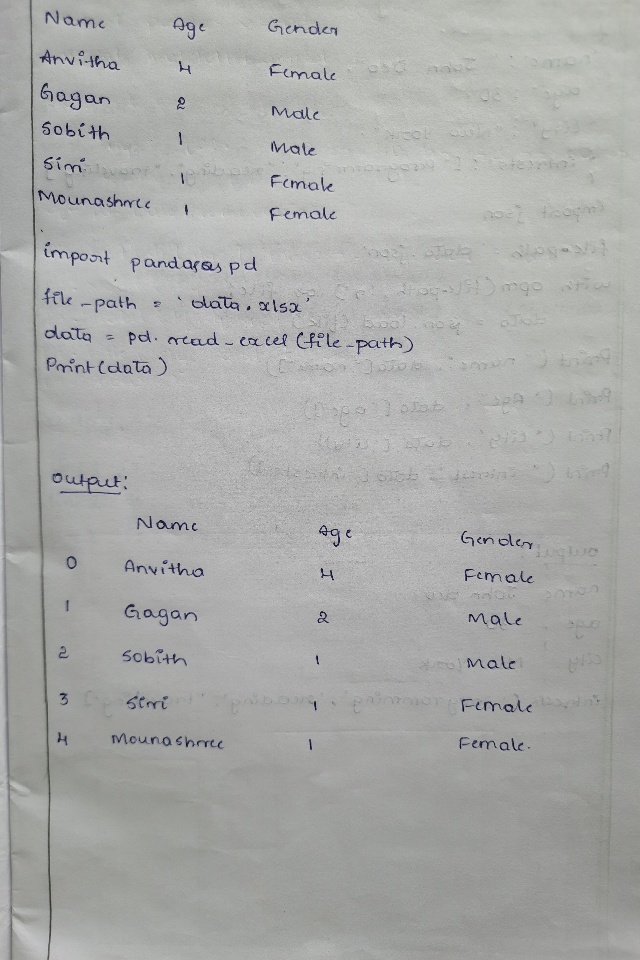 Name Age Gender
Anvitha 4 Female
Gagan 2 Male
Sobith 1 Male
Siri 1 Female
Mounashree 1 Female
import pandas as pd
file_path = 'data.xlsx'
data = pd.read_excel(file_path)
Print(data)
output:
Name Age Gender
0 Anvitha 4 Female
1 Gagan 2 Male
2 Sobith 1 Male
3 Siri 1 Female
4 Mounashree 1 Female.